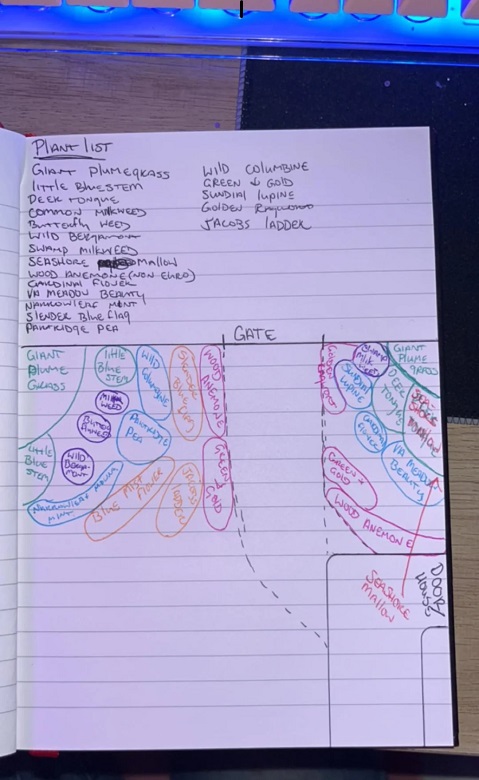 PLANT LIST
GIANT PLUMEGRASS
LITTLE BLUESTEM
DEER TONGUE
COMMON MILKWEED
BUTTERFLY WEED
WILD BERGAMOT
SWAMP MILKWEED
SEASHORE MALLOW
WOOD ANEMONE (NON EURO)
CARDINAL FLOWER
VA MEADOW BEAUTY
NARROWLEAF MINT
SLENDER BLUE FLAG
PARTRIDGE PEA
WILD COLUMBINE
GREEN & GOLD
SUNDIAL LUPINE
GOLDEN
JACOBS LADDER
GATE
GIANT
PLUME
GRASS
LITTLE
BLUE
STEM
WILD
COLUMBINE
SLENDER
BLUE FLAG
WOOD
ANEMONE
MILK
WEED
BUTTER
WEED
PARTRIDGE
PEA
LITTLE
BLUE
STEM
WILD
BERGA-
MOT
NARROWLEAF
MINT
BLUE MIST
FLOWER
JACOBS
LADDER
GREEN &
GOLD
GOLDEN
SWAMP
MILK
WEED
GIANT
PLUME
GRASS
SUNDIAL
LUPINE
DEER
TONGUE
SEA
SHORE
MALLOW
CARDINAL
FLOWER
VA MEADOW
BEAUTY
GREEN &
GOLD
WOOD ANEMONE
SEASHORE
MALLOW
HOUSE